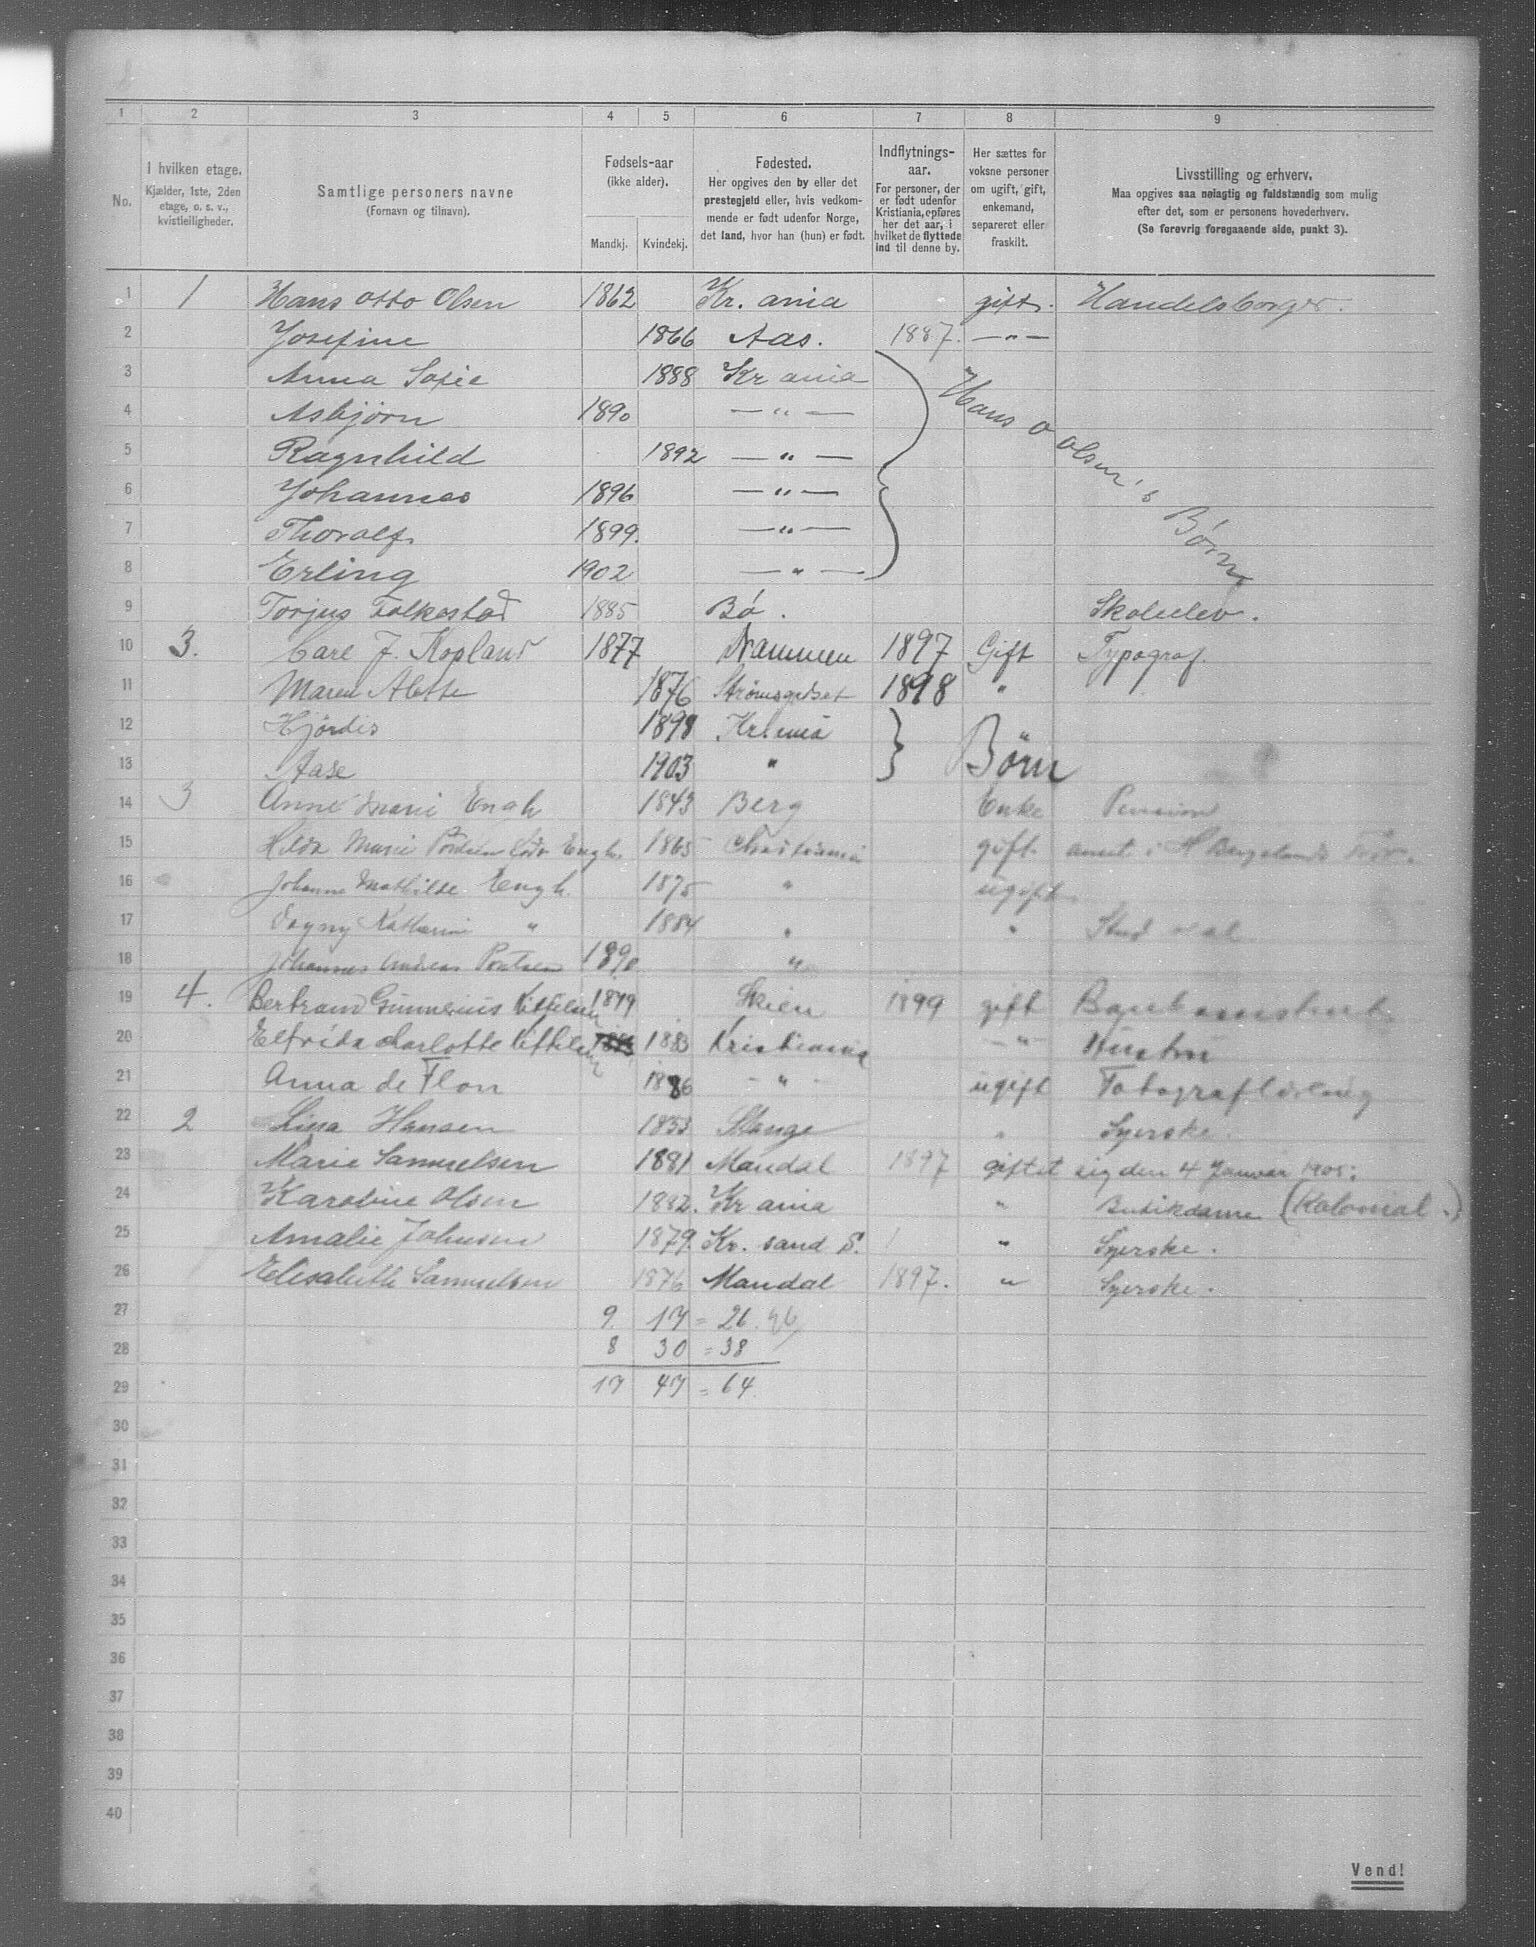 1 2 3 4 5 6 7 8 9
No. I hvilken etage. Kjælder, 1ste, 2den etage, o. s. v., kvistleiligheder. Samtlige personers navne (Fornavn og tilnavn). Fødsels-aar (ikke alder). Mandkj. Kvindekj. Fødested. Her opgives den by eller det prestegjeld eller, hvis vedkommende er født udenfor Norge, det land, hvor han (hun) er født. Indflytnings-aar. For personer, der er født udenfor Kristiania, opføres her det aar, i hvilket de flyttede ind til denne by. Her sættes for voksne personer om ugift, gift, enkemand, separeret eller fraskilt. Livsstilling og erhverv. Maa opgives saa nøiagtig og fuldstændig som mulig efter det, som er personens hovederhverv. (Se forøvrig foregaaende side, punkt 3).
1 1 Hans Otto Olsen 1862 Kr. ania gift. Handelsborger.
2 Josefine 1866 Aas. 1887. — " —
3 Anna Sofie 1888 Kr ania Hans O Olsen's Børn
4 Asbjørn 1890 — " —
5 Ragnhild 1892 — " —
6 Johannes 1896 — " —
7 Thoralf 1899. — " —
8 Erling 1902 — " —
9 Torjus Folkestad 1885 Bø. Skoleelev.
10 3. Carl J. Kopland 1877 Drammen 1897 Gift Typograf.
11 Maren Alette 1876 Strømsgodset 1898 "
12 Hjørdis 1898 Krania Børn
13 Aase 1903 "
14 3 Anne Marie Engh 1843 Berg Enke Pension
15 Hilda Marie født Engh. 1865 Christiania gift. ansat i H
16 Johanne Mathilde Engh. 1875 " ugift
17 Dagny Katharine " 1884 " " Stud
18 Johannes Andreas 1890 "
19 4. Bertram Gunnerius Kittilsen 1879 Skien 1899 gift Bankassistent
20 Elfrida Charlotte Kittilsen 1883 Kristiania — " — Hustru
21 Anna de Flon 1886 — " — ugift Fotograflærling
22 2 Lina Hansen 1853 Stange " Syerske.
23 Marie Samuelsen 1881 Mandal 1897 giftet sig den 4 Januar 1905:
24 Karoline Olsen 1882. Kr ania " Butikdame (Kolonial.)
25 Amalie Johnsen 1879. Kr. sand S. " Syerske.
26 Elisabeth Samuelsen 1876 Mandal 1897. " Syerske.
27 9 17 = 26
28 8 30 = 38
29 17 47 = 64
30
31
32
33
34
35
36
37
38
39
40
Vend!